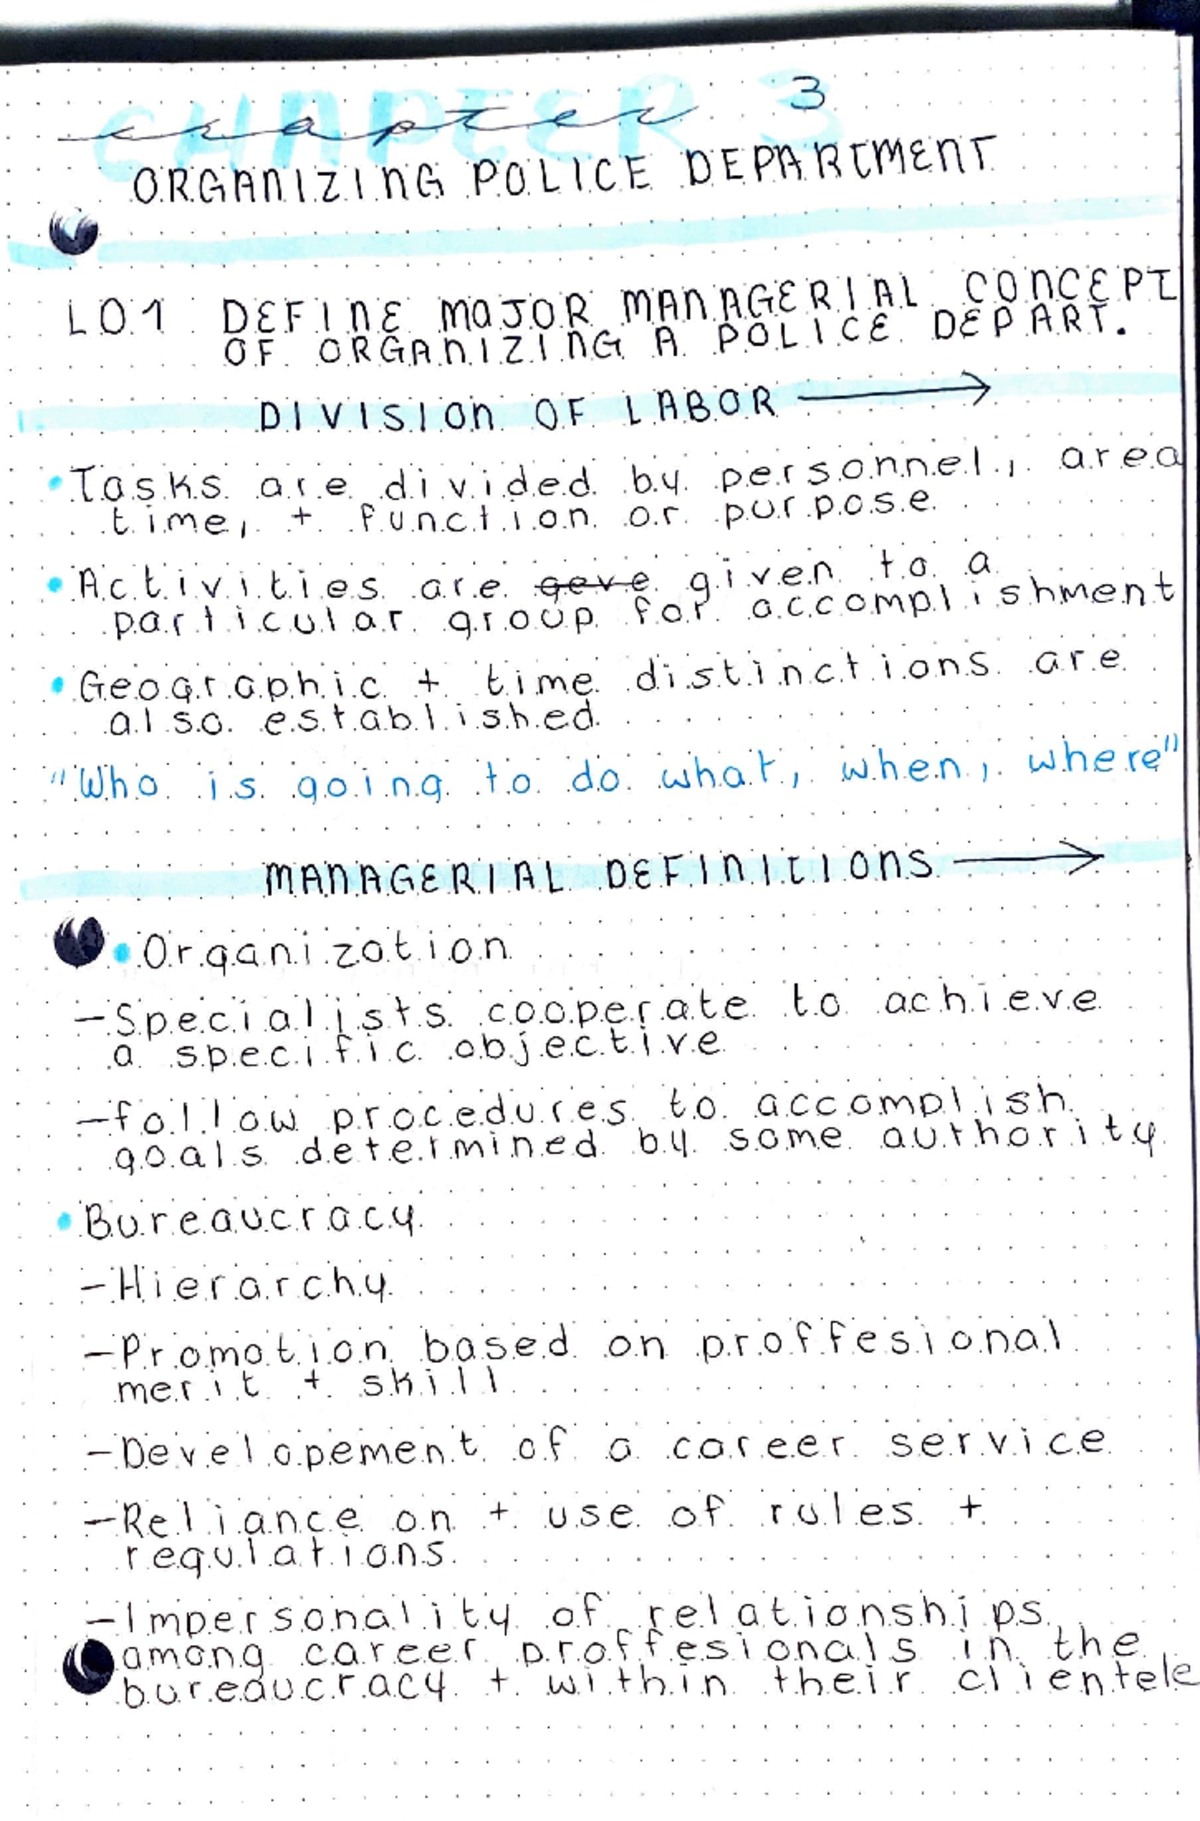 CHAPTER 3
chapter
ORGANIZING POLICE DEPARTMENT
LO1 DEFINE MAJOR MANAGERIAL CONCEPT
OF ORGANIZING A POLICE DEPART.
DIVISION OF LABOR →
•Tasks are divided by personnel, area
time, + function or purpose
•Activities are geve given to a
particular group for accomplishment
•Geographic + time distinctions are
also established
"Who is going to do what, when, where"
MANAGERIAL DEFINITIONS →
•Organization
-Specialists cooperate to achieve
a specific objective
-follow procedures to accomplish
goals determined by some authority
•Bureaucracy
-Hierarchy
-Promotion based on proffesional
merit + skill
-Developement of a career service
-Reliance on + use of rules +
regulations
-Impersonality of relationships
among career proffesionals in the
bureaucracy + within their clientele